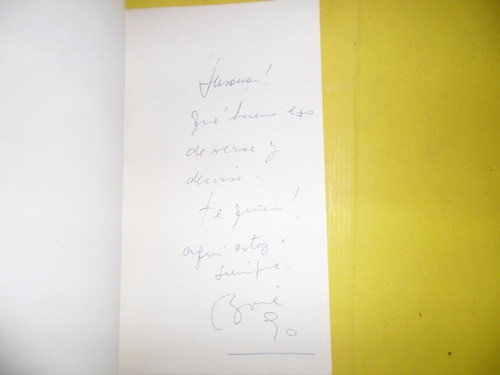 Susana!
Qué bueno eso
de verse y
decirse.
te quiero!
aquí estoy.
siempre.
90